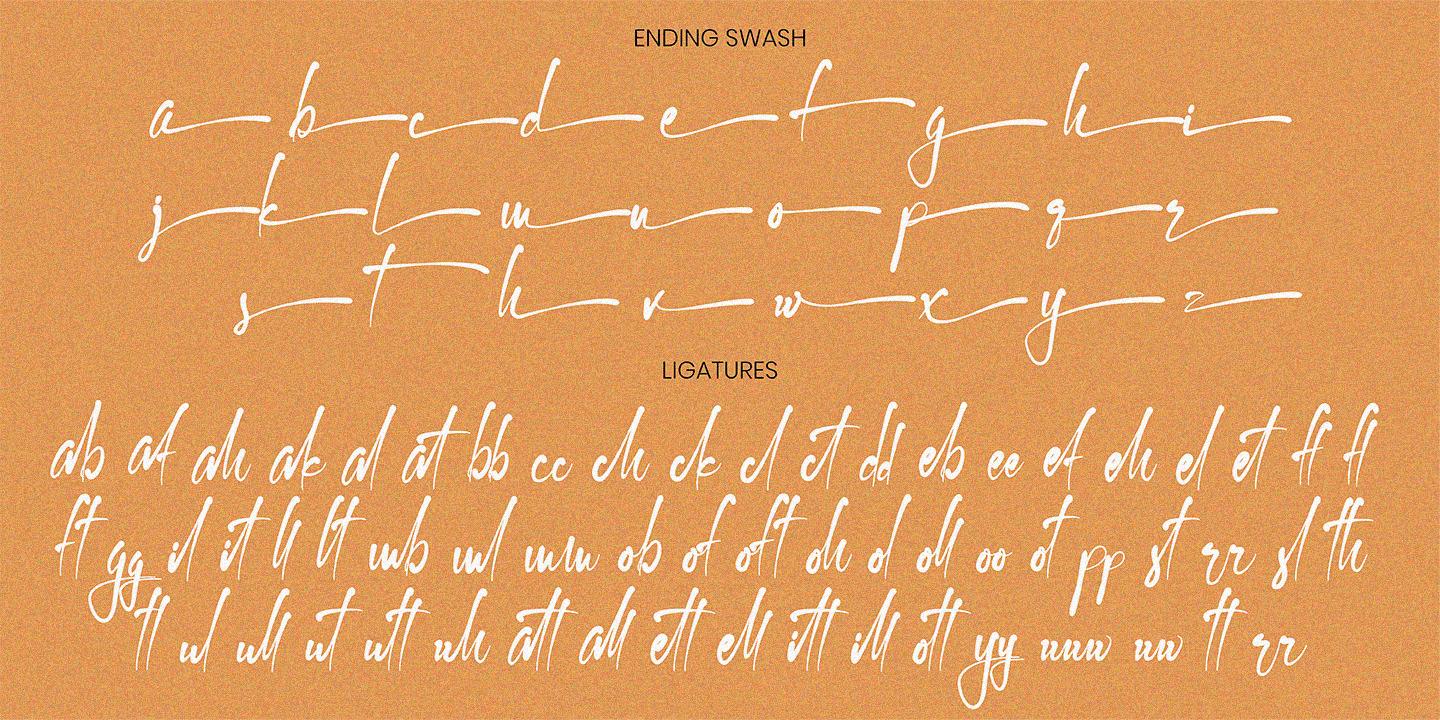 ENDING SWASH
a b c d e f g h i
j k l m n o p q r
s t h v w x y z
LIGATURES
ab af ah ak al at bb cc ch ck cl ct dd eb ee ef eh el et ff fl
ft gg il it ll lt mb ml mm ob of oft oh ol oll oo ot pp st rr sl th
tt ul ull ut utt uh att all ett ell itt ill ott yy www ww tt rr